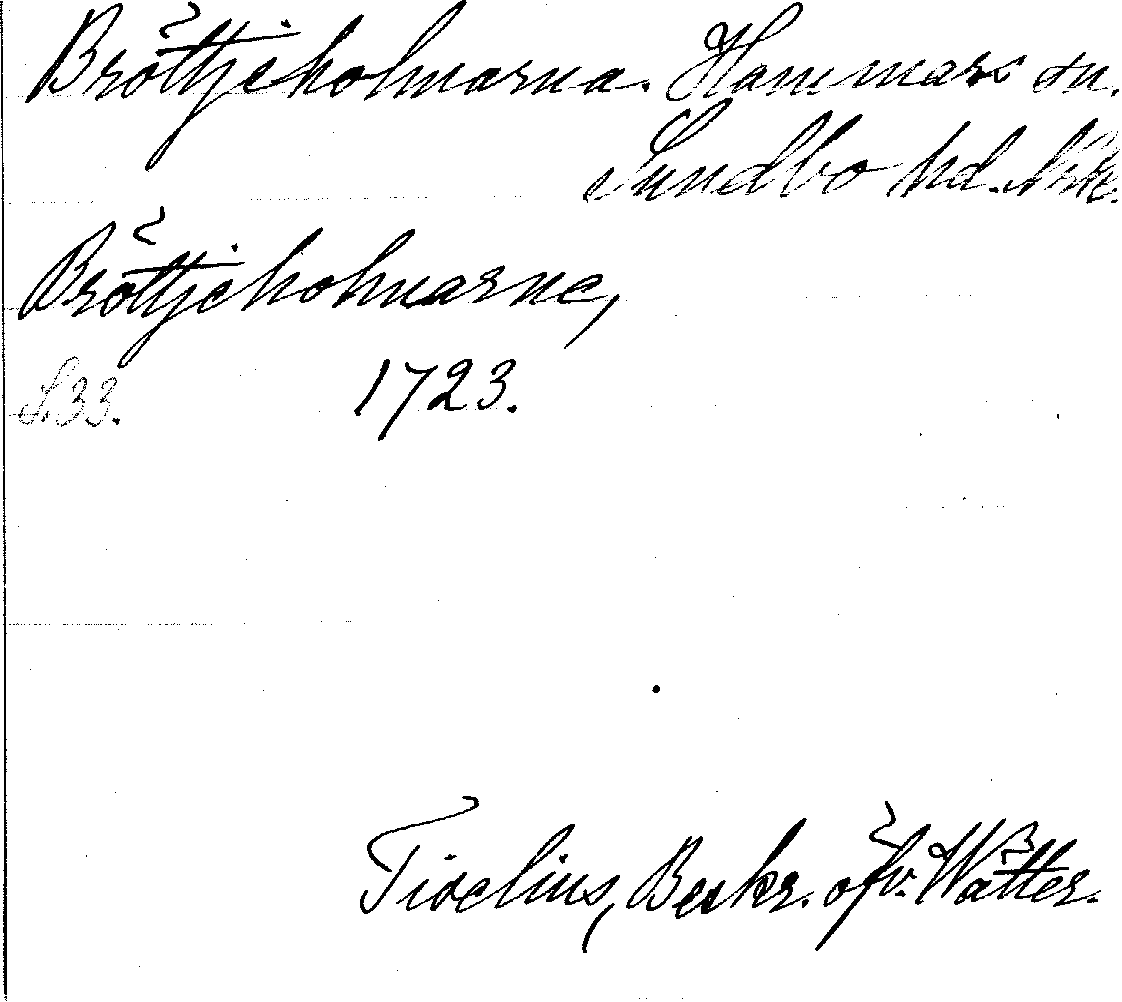 Bröttjeholmarna. Hammars sn.
Sundbo hd. Nrk.
Bröttjeholmarne,
S.33. 1723.
Tiselius, Beskr. öfv. Wätter.